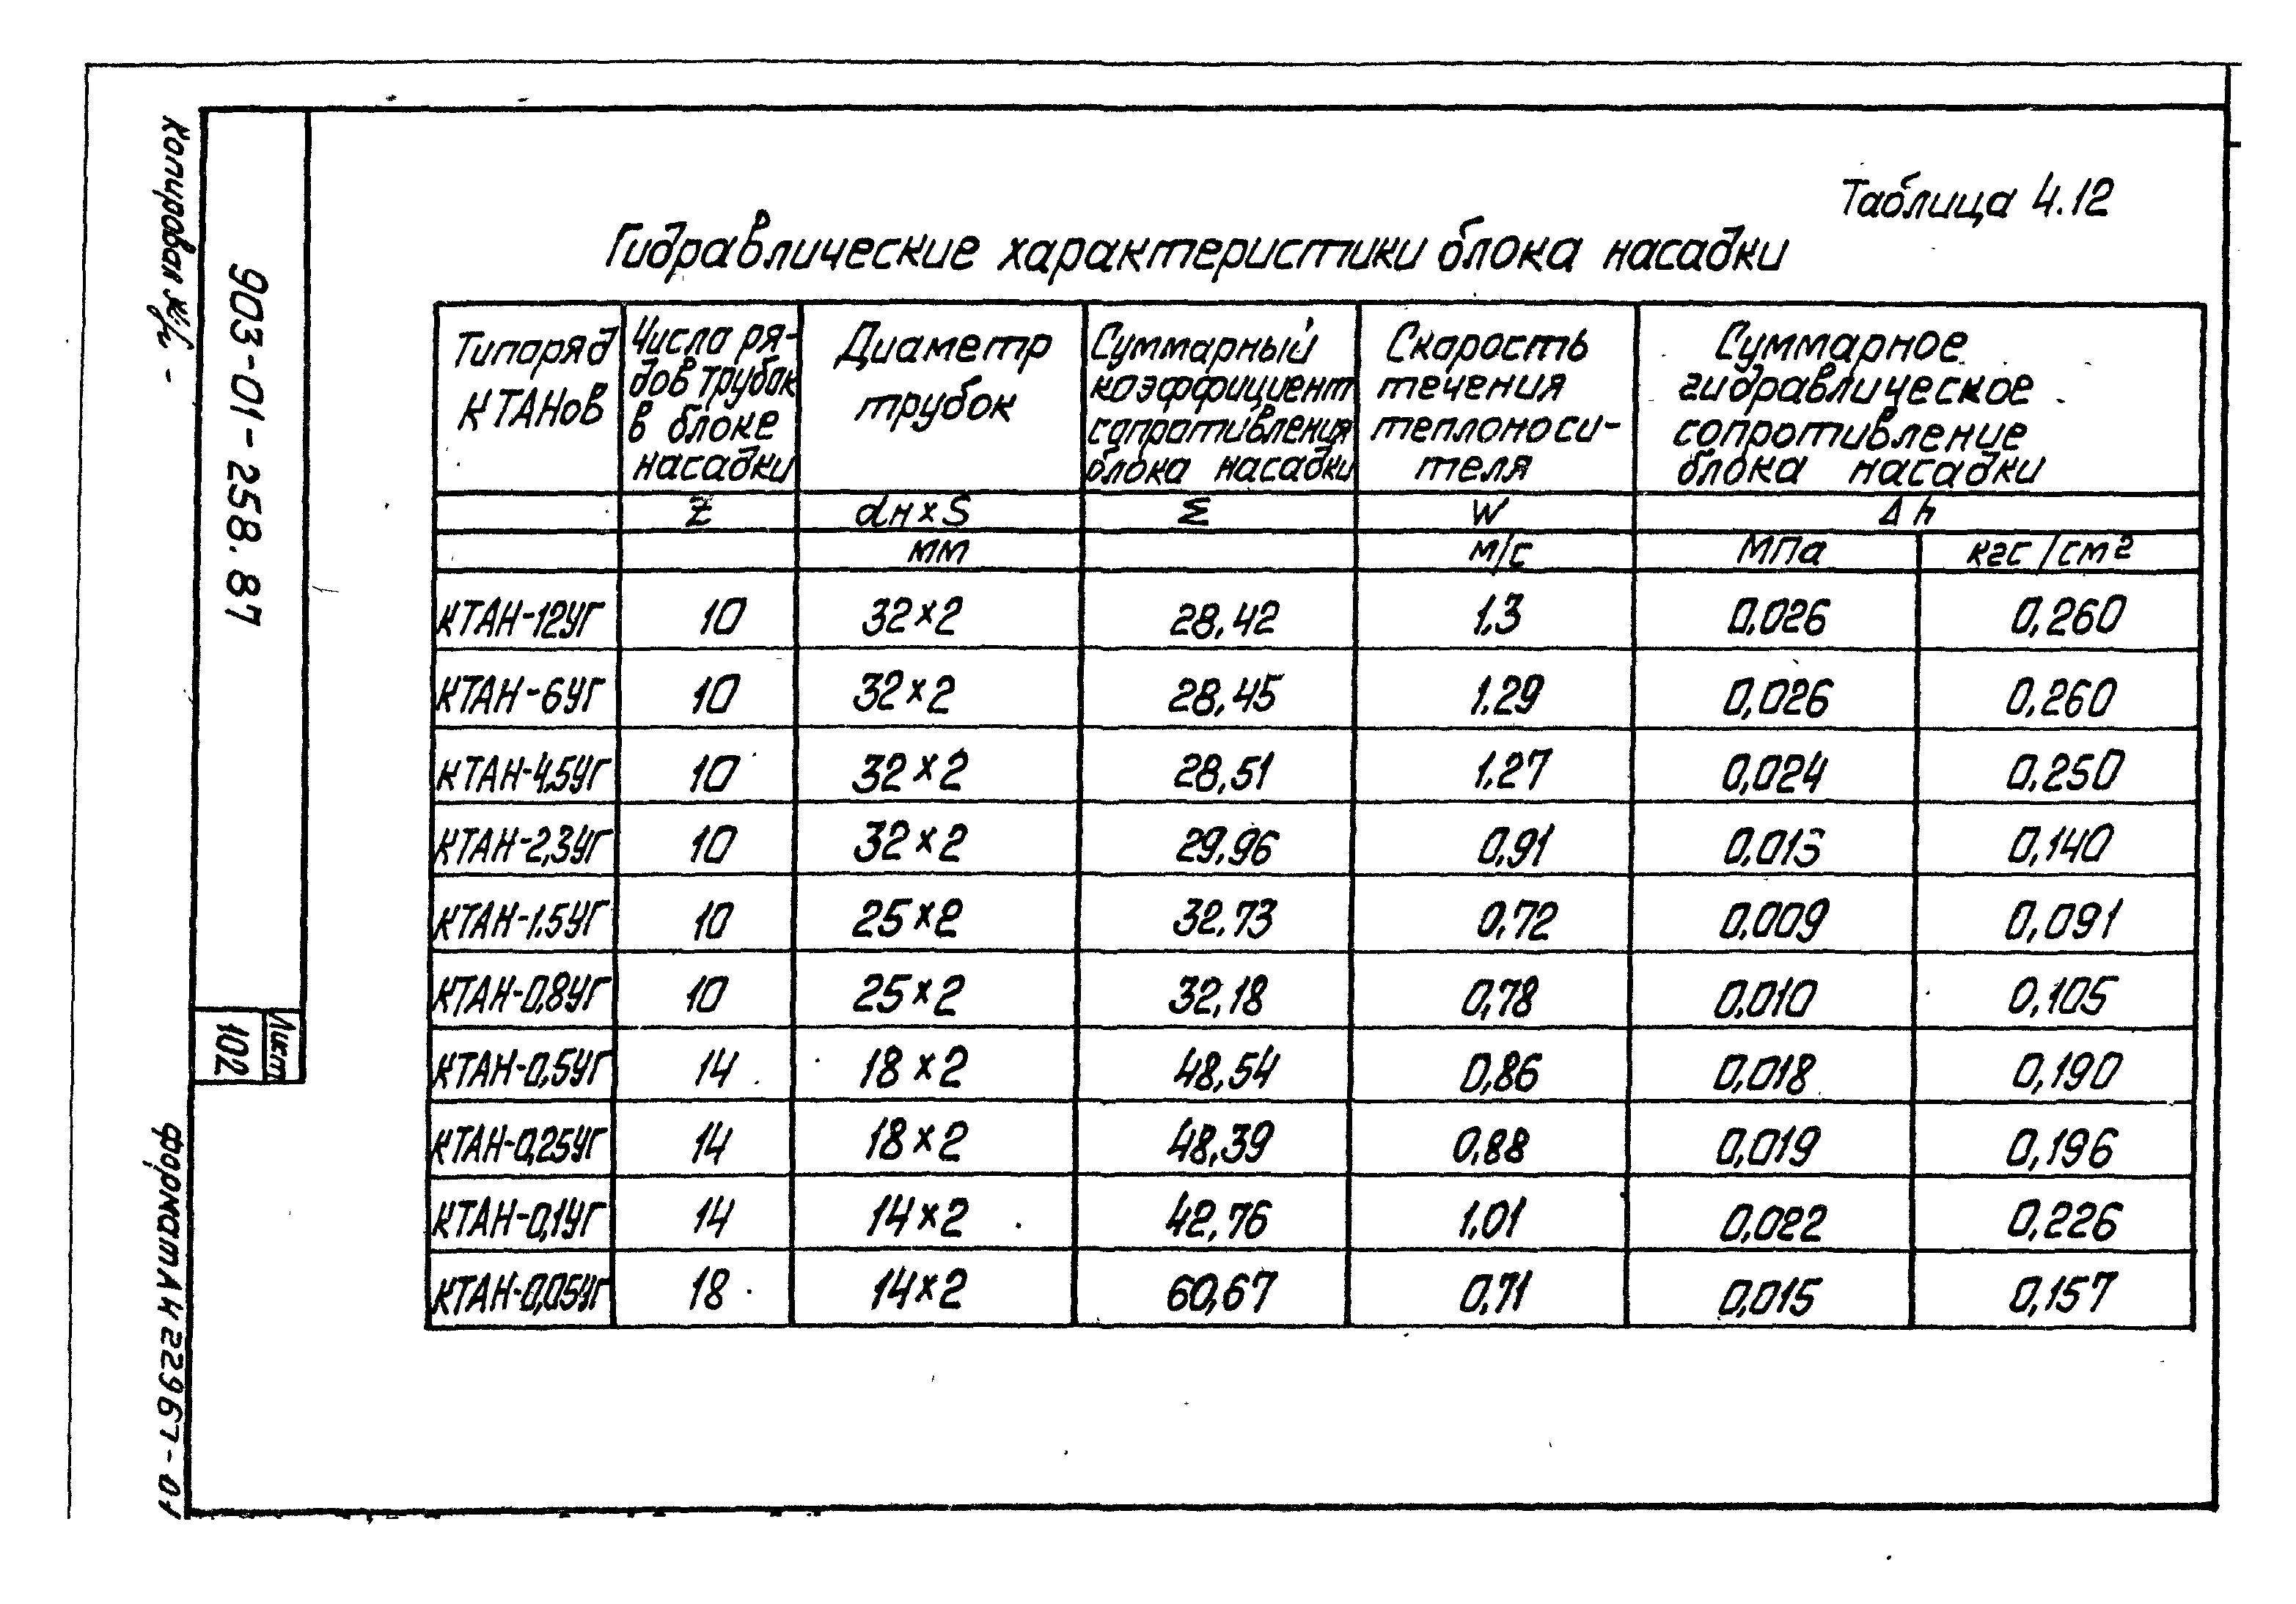 Таблица 4.12
Гидравлические характеристики блока насадки
Типоряд КТАНов
Число рядов трубок в блоке насадки
Диаметр трубок
Суммарный коэффициент сопротивления блока насадки
Скорость течения теплоносителя
Суммарное гидравлическое сопротивление блока насадки
Z dн×S Σ W Δh
мм м/с МПа кгс/см²
КТАН-12УГ 10 32×2 28,42 1,3 0,026 0,260
КТАН-6УГ 10 32×2 28,45 1.29 0,026 0,260
КТАН-4,5УГ 10 32×2 28,51 1,27 0,024 0,250
КТАН-2,3УГ 10 32×2 29,96 0,91 0,013 0,140
КТАН-1.5УГ 10 25×2 32,73 0,72 0,009 0,091
КТАН-0,8УГ 10 25×2 32,18 0,78 0,010 0,105
КТАН-0,5УГ 14 18×2 48,54 0,86 0,018 0,190
КТАН-0,25УГ 14 18×2 48,39 0,88 0,019 0,196
КТАН-0,1УГ 14 14×2 42,76 1,01 0,022 0,226
КТАН-0,05УГ 18 14×2 60,67 0,71 0,015 0,157
Копировал
903-01-258.87
Лист
102
формат А4 22967-01